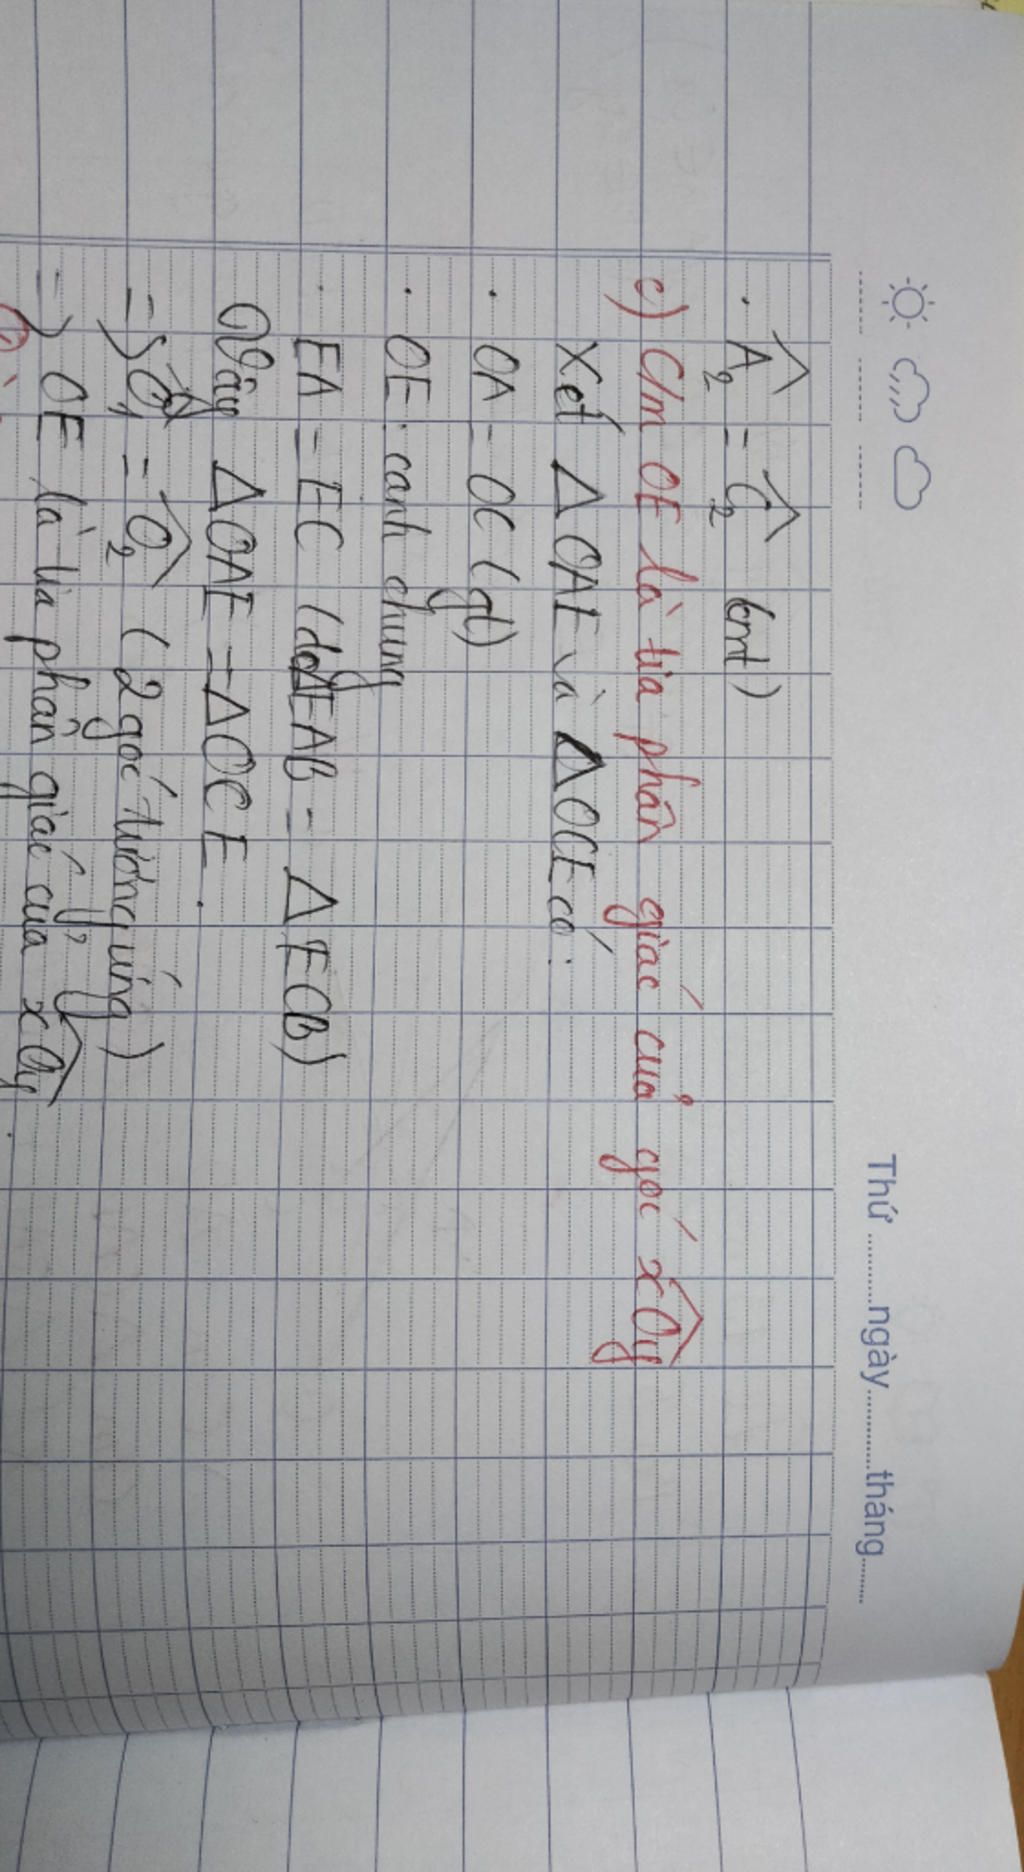 Thứ ...........ngày............tháng.......
. Â₂ = Ĉ₂ (cmt)
c) C/m OE là tia phân giác của góc xÔy
Xét Δ OAE và Δ OCE có:
. OA = OC (gt)
. OE: canh chung
. EA = EC (do ΔEAB = Δ ECD)
Vậy ΔOAE = ΔOCE.
=> Ô₁ = Ô₂ (2 góc tương ứng)
=> OE là tia phân giác của xÔy.